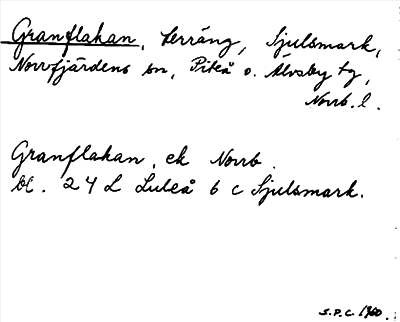 Granflakan, terräng, Sjulsmark,
Norrfjärdens sn, Piteå o. Älvsby tg,
Norrb. l.
Granflakan, ek Norrb.
bl. 24 L Luleå 6 c Sjulsmark.
S.P.C. 1960.